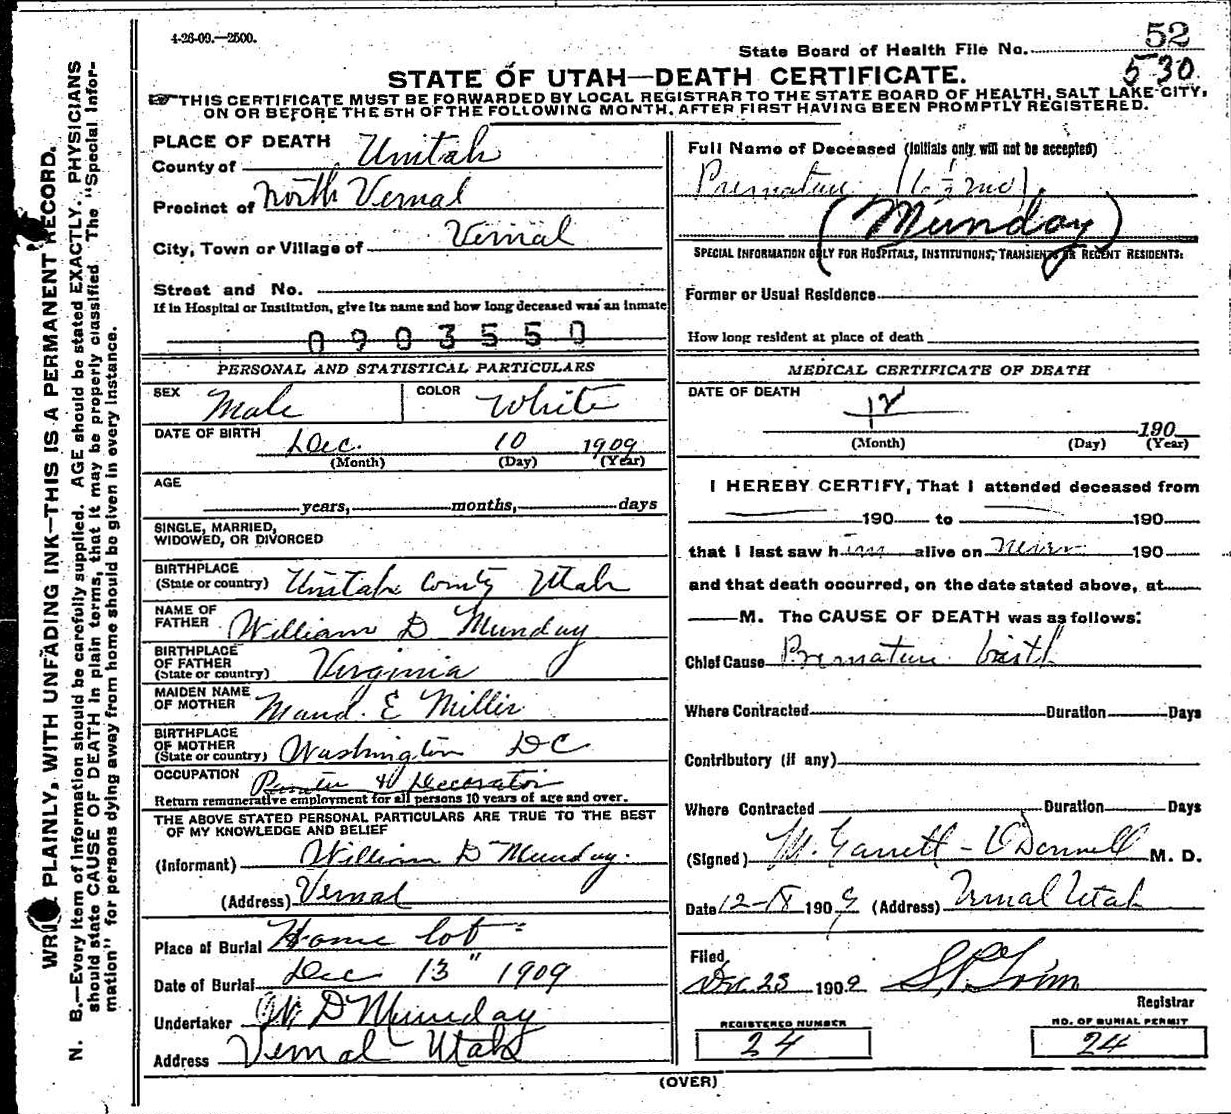 4-26-09.—2500.
State Board of Health File No. 52
530
STATE OF UTAH—DEATH CERTIFICATE.
THIS CERTIFICATE MUST BE FORWARDED BY LOCAL REGISTRAR TO THE STATE BOARD OF HEALTH, SALT LAKE CITY,
ON OR BEFORE THE 5TH OF THE FOLLOWING MONTH, AFTER FIRST HAVING BEEN PROMPTLY REGISTERED.
PLACE OF DEATH
County of Unitah
Precinct of North Vernal
City, Town or Village of Vernal
Street and No.
If in Hospital or Institution, give its name and how long deceased was an inmate
0903550
PERSONAL AND STATISTICAL PARTICULARS
SEX Male COLOR White
DATE OF BIRTH Dec. 10 1909
(Month) (Day) (Year)
AGE
years, months, days
SINGLE, MARRIED,
WIDOWED, OR DIVORCED
BIRTHPLACE
(State or country) Unitah County Utah
NAME OF
FATHER William D Munday
BIRTHPLACE
OF FATHER
(State or country) Virginia
MAIDEN NAME
OF MOTHER Maud. E Miller
BIRTHPLACE
OF MOTHER
(State or country) Washington DC
OCCUPATION Painter & Decorator
Return remunerative employment for all persons 10 years of age and over.
THE ABOVE STATED PERSONAL PARTICULARS ARE TRUE TO THE BEST
OF MY KNOWLEDGE AND BELIEF
(Informant) William D Munday.
(Address) Vernal
Place of Burial Home lot
Date of Burial Dec 13" 1909
Undertaker W D Munday
Address Vernal Utah
Full Name of Deceased (Initials only will not be accepted)
Premature (6½ mo).
(Munday)
SPECIAL INFORMATION ONLY FOR HOSPITALS, INSTITUTIONS, TRANSIENTS OR RECENT RESIDENTS:
Former or Usual Residence
How long resident at place of death
MEDICAL CERTIFICATE OF DEATH
DATE OF DEATH
12
190
(Month) (Day) (Year)
I HEREBY CERTIFY, That I attended deceased from
190 to 190
that I last saw him alive on never 190
and that death occurred, on the date stated above, at
M. The CAUSE OF DEATH was as follows:
Chief Cause Premature birth
Where Contracted Duration Days
Contributory (if any)
Where Contracted Duration Days
(Signed) M. Garrett-O'Donnell M. D.
Date 12-18 1909 (Address) Vernal Utah
Filed
Dec 23 1909
Registrar
REGISTERED NUMBER
24
NO. OF BURIAL PERMIT
24
(OVER)
WRITE PLAINLY, WITH UNFADING INK—THIS IS A PERMANENT RECORD.
N. B.—Every item of information should be carefully supplied. AGE should be stated EXACTLY. PHYSICIANS
should state CAUSE OF DEATH in plain terms, that it may be properly classified. The "Special Infor-
mation" for persons dying away from home should be given in every instance.